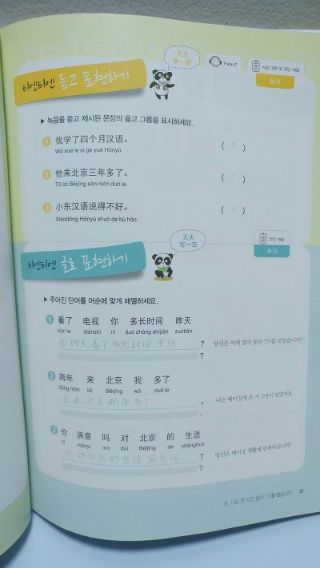 天天
听一听
티엔티엔 듣고 표현하기
듣기
▶ 녹음을 듣고 제시된 문장의 옳고 그름을 표시하세요.
1 我学了四个月汉语。 ( )
Wǒ xué le sì ge yuè Hànyǔ.
2 他来北京三年多了。 ( )
Tā lái Běijīng sān nián duō le.
3 小东汉语说得不好。 ( )
Xiǎodōng Hànyǔ shuō de bù hǎo.
天天
写一写
티엔티엔 글로 표현하기
쓰기
▶ 주어진 단어를 어순에 맞게 배열하세요.
1 看了 电视 你 多长时间 昨天
kàn le diànshì nǐ duō cháng shíjiān zuótiān
你昨天看了多长时间电视 ?
당신은 어제 얼마 동안 TV를 보았습니까?
2 两年 来 北京 我 多了
liǎng nián lái Běijīng wǒ duō le
我来北京两年多了 。
나는 베이징에 온 지 2년이 넘었어요.
3 你 满意 吗 对 北京 的 生活
nǐ mǎnyì ma duì Běijīng de shēnghuó
你对北京的生活满意吗 ?
당신은 베이징 생활에 만족하십니까?